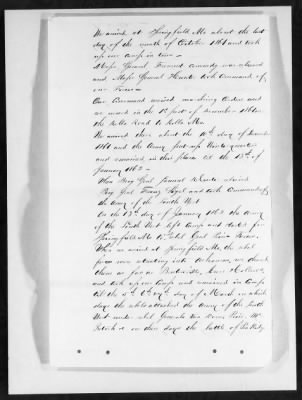 We arrived at Springfield Mo about the last
day of the month of October 1861 and took
up our Camp in town
Major General Fremont was relieved
and Major General Hunter took Command of
our Forces
Our Command received marching Orders and
we march in the 1st part of November 1861 on
the Rolla Road to Rolla Mo.
We arrived there about the 10th day of November
1861 and the Army put up Winter quarters
and remained in this place till the 13th of
January 1862
When Brig Genl Samuel Curtis relieved
Brig Genl Franz Sigel and took Command of
the Army of the South West
On the 13th day of January 1862 the Army
of the South West left Camp and started for
Springfield Mo to Genl Price
When we arrived at Springfield Mo, the rebel
force was retreating into Arkansas, we
them as far as Bentonville, Cross Hollows
and took up our Camp and remained in Camp
till the 5th 6th & 7th day of March on which
days the rebels attacked the Army of the South
West under rebel Generals Van Dorn, Price, Mc
Intosh & on these days the battle of Pea Ridge